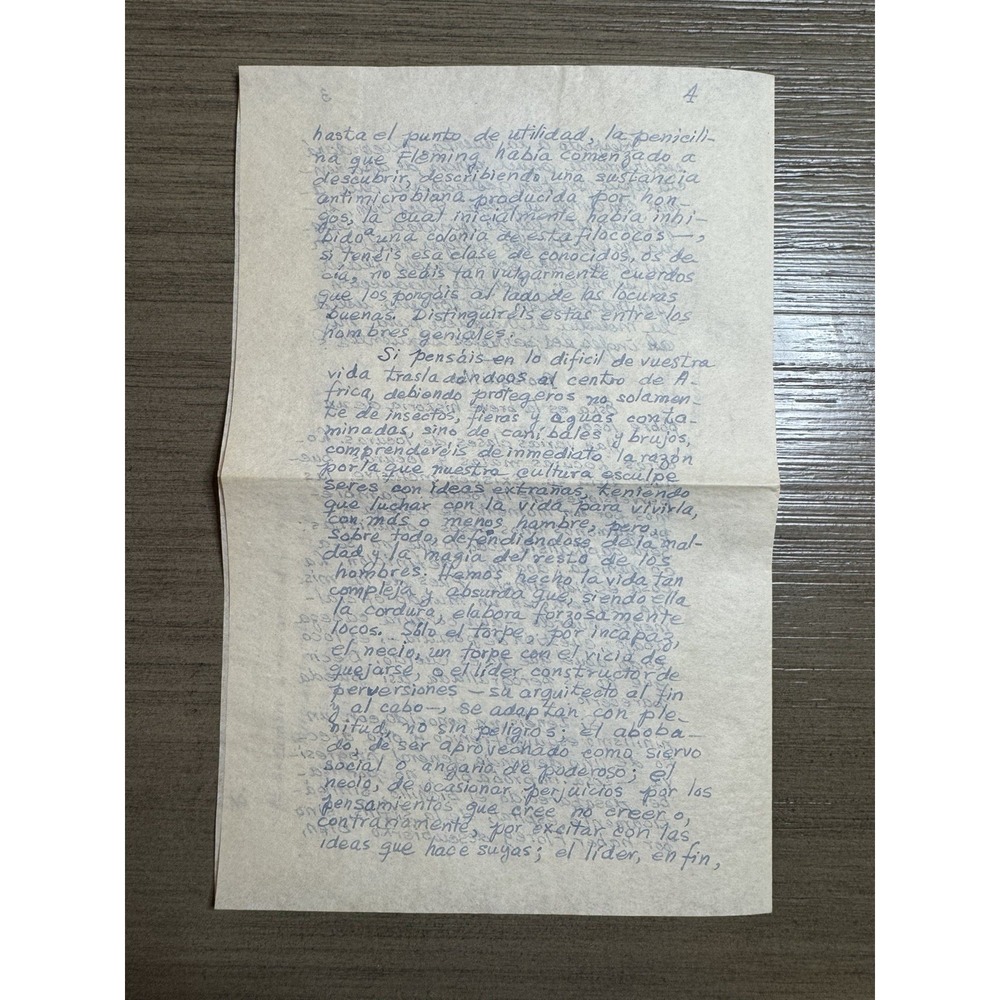 4
hasta el punto de utilidad, la penicili-
na que Fleming había comenzado a
descubrir, describiendo una sustancia
antimicrobiana producida por hon-
gos, la cual inicialmente había inhi-
bido a una colonia de estafilococos —,
si tenéis esa clase de conocidos, os de-
cía, no seáis tan vulgarmente cuerdos
que los pongáis al lado de las locuras
buenas. Distinguiréis estas entre los
hombres geniales.
Si pensáis en lo difícil de vuestra
vida trasladándoos al centro de Á-
frica, debiendo protegeros no solamen-
te de insectos, fieras y aguas conta-
minadas, sino de caníbales y brujos,
comprenderéis de inmediato la razón
por la que nuestra cultura esculpe
seres con ideas extrañas, teniendo
que luchar con la vida para vivirla,
con más o menos hambre, pero,
sobre todo, defendiéndose de la mal-
dad y la magia del resto de los
hombres. Hemos hecho la vida tan
compleja y absurda que, siendo ella
la cordura, elabora forzosamente
locos. Sólo el torpe, por incapaz,
el necio, un torpe con el vicio de
quejarse, o el líder constructor de
perversiones — su arquitecto al fin
y al cabo —, se adaptan con ple-
nitud, no sin peligros; el aboba-
do, de ser aprovechado como siervo
social o angario de poderoso; el
necio, de ocasionar perjuicios por los
pensamientos que cree no creer o,
contrariamente, por excitar con las
ideas que hace suyas; el líder, en fin,